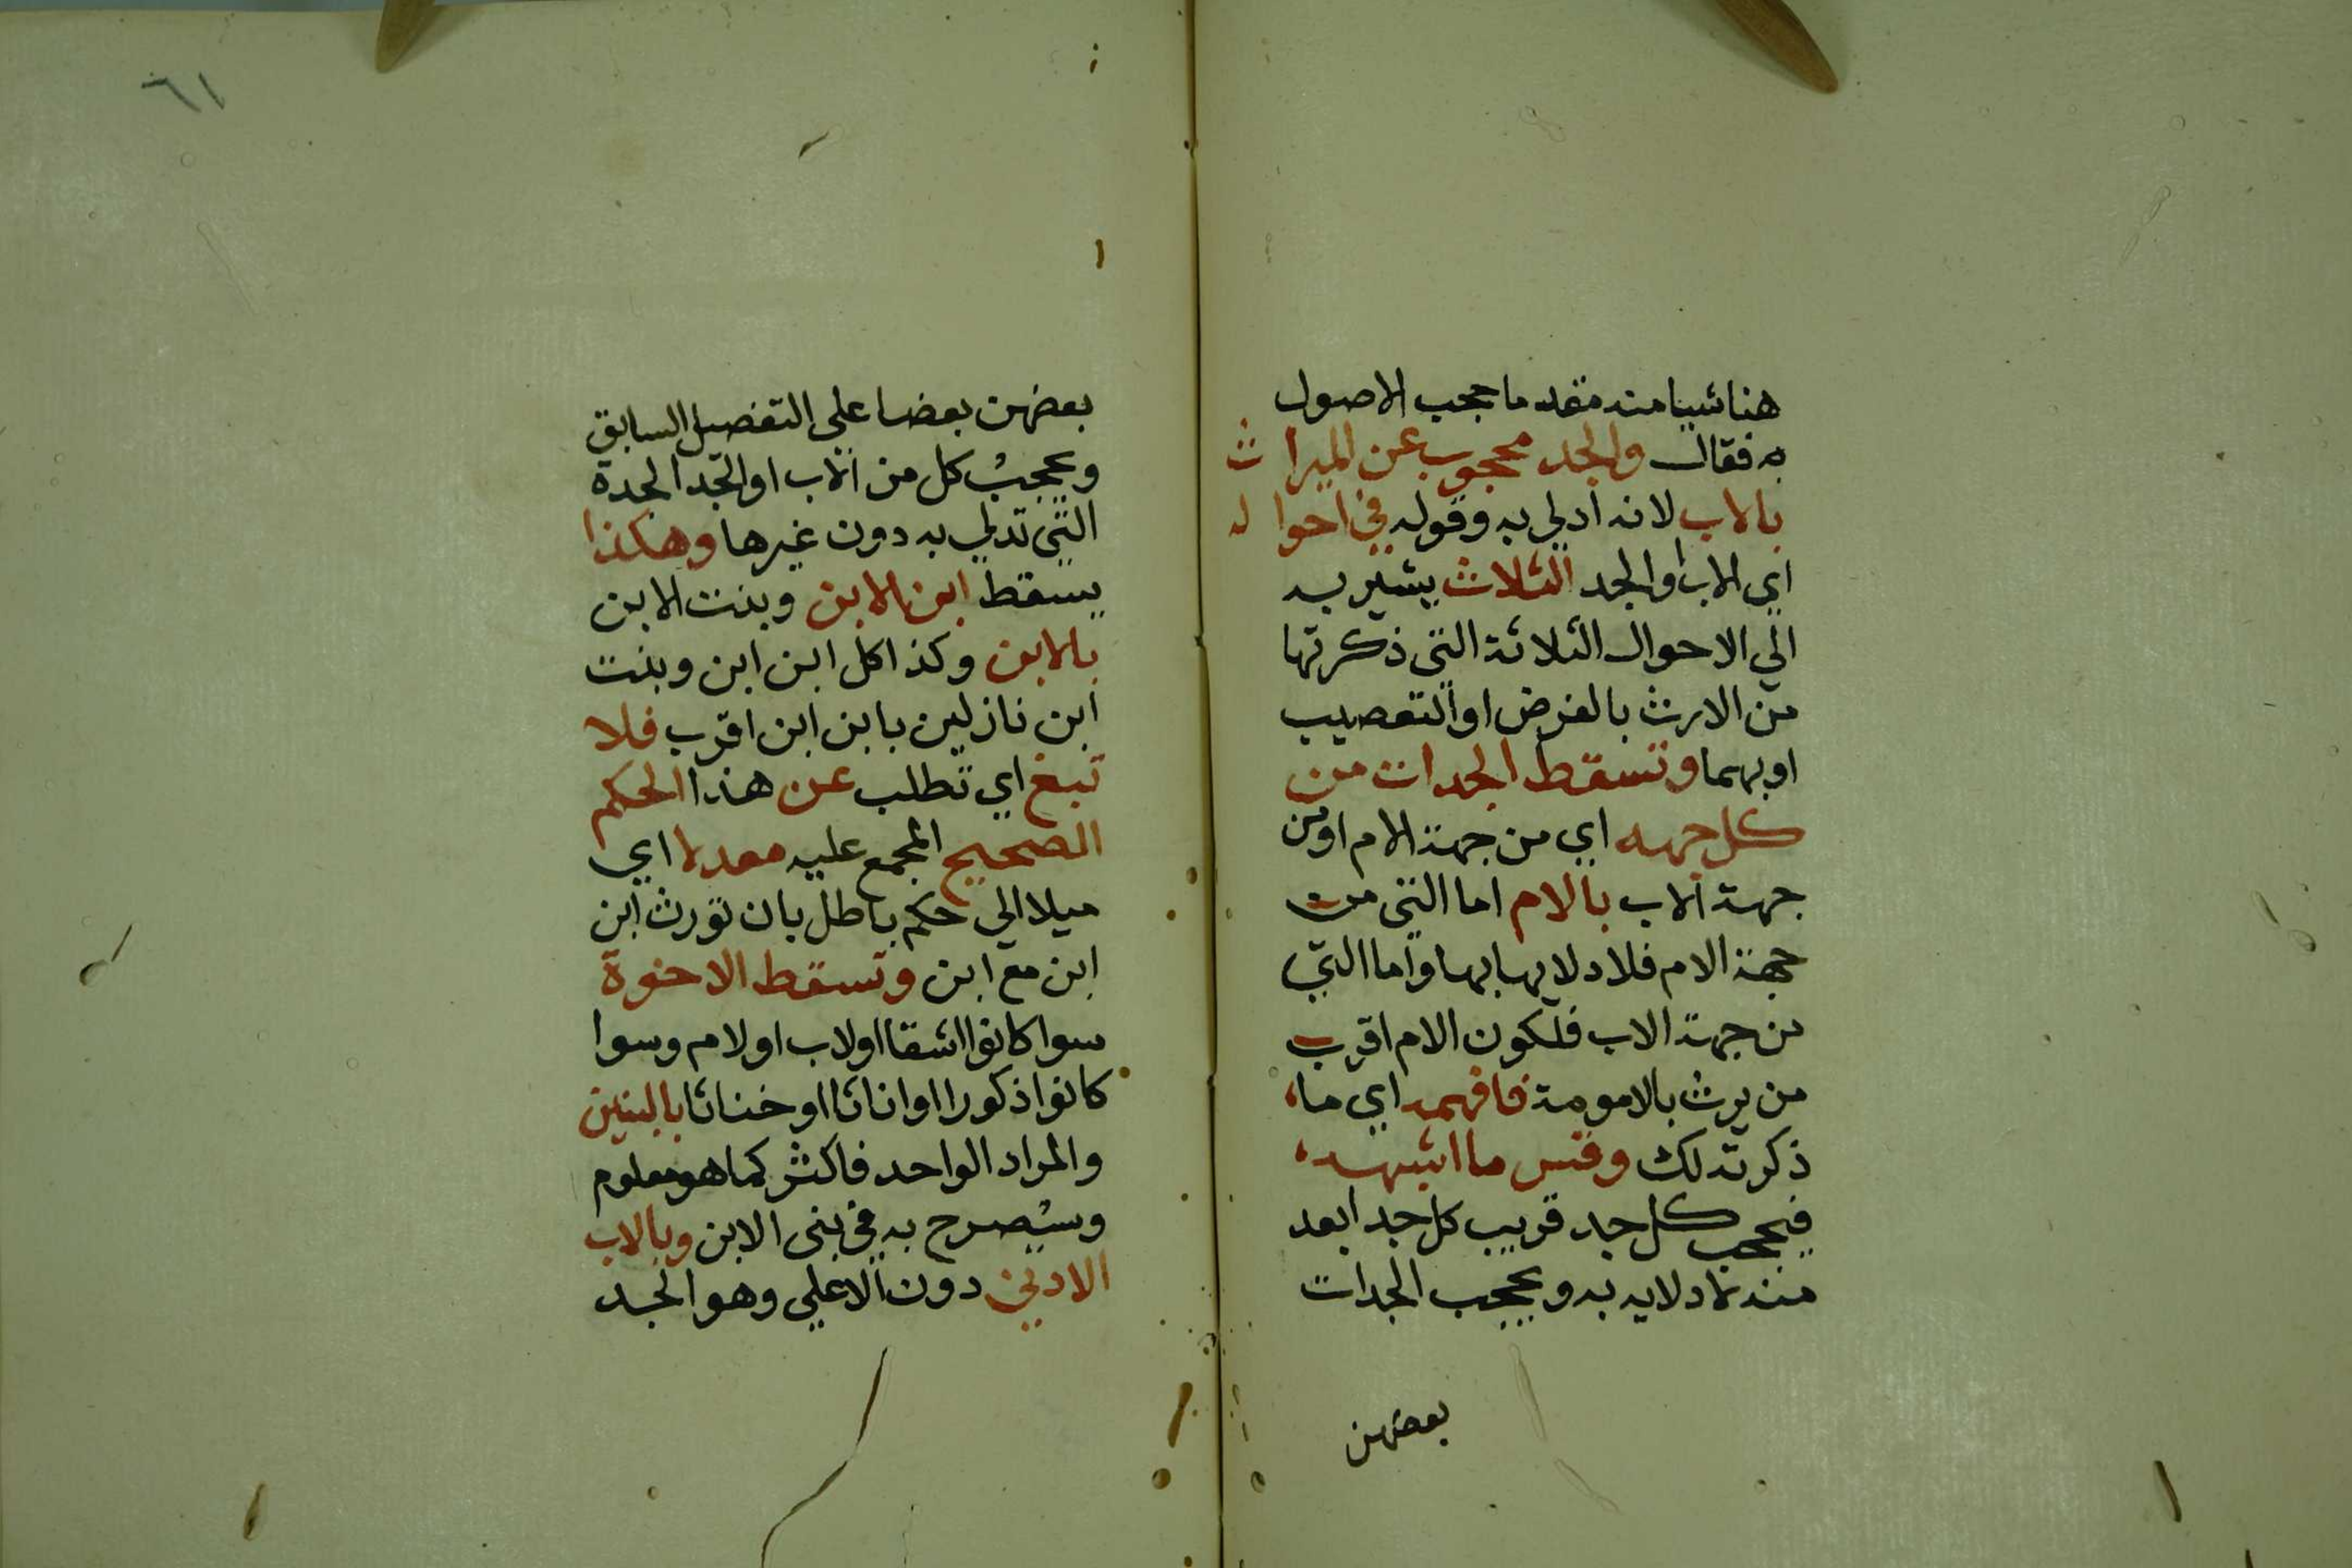 هنا شيا منه مقدما حجب الاصول
به فقال والجد محجوب عن الميراث
بالاب لانه ادلي به وقوله في احواله
اي الاب او الجد الثلاث يشير به
الي الاحوال الثلاثة التي ذكرتها
من الارث بالفرض او التعصيب
او بهما وتسقط الجدات من
كل جهه اي من جهة الام او من
جهة الاب بالام اما التي من
جهة الام فلادلايها بها واما التي
من جهة الاب فلكون الام اقرب
من يرث بالامومة فافهمه اي ما
ذكرته لك وقس ما اشبهه
فيحجب كل جد قريب كل جد ابعد
منه لادلايه به ويحجب الجدات
بعضهن
٦١
بعضهن بعضا علي التفصيل السابق
ويحجب كل من الاب او الجد الجدة
التي تدلي به دون غيرها وهكذا
يسقط ابن الابن وبنت الابن
بالابن وكذا كل ابن ابن وبنت
ابن نازلين بابن ابن اقرب فلا
تبغ اي تطلب عن هذا الحكم
الصحيح المجمع عليه معدلا اي
ميلا الي حكم باطل بان تورث ابن
ابن مع ابن وتسقط الاخوة
سوا كانوا اشقا او لاب او لام وسوا
كانوا ذكورا او اناثا او خناثا بالبنين
والمراد الواحد فاكثر كما هو معلوم
وسيصرح به في بني الابن وبالاب
الادني دون الاعلي وهو الجد